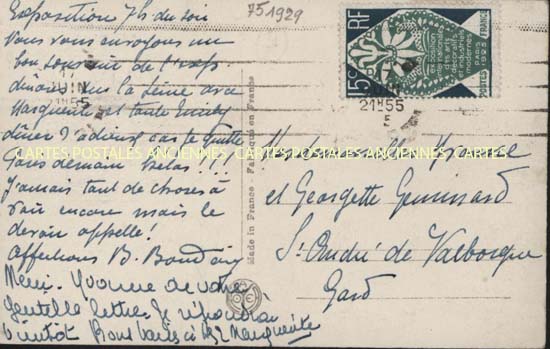 Exposition 7h du soir
Nous vous envoyons un
bon souvenir de l'expo
dinons sur la Seine avec
Marguerite et tante
dîner
Paris demain helas!!!
J'aurais tant de choses à
voir encore mais le
devoir appelle!
Affectueux B.
Merci Yvonne de votre
gentille lettre. Je répondrai
bientôt Marguerite
751929
Mademoiselle Yvonne
et Georgette
St André de Valborgne
Gard
Made in France - Fabriqué en France
CARTES POSTALES ANCIENNES CARTES POSTALES ANCIENNES CARTES
15c RF
exposition
internationale
des arts
décoratifs
et industriels
modernes
PARIS
1925
POSTES FRANCE
JUIN
21H55
5
17
JUIN
21H55
5